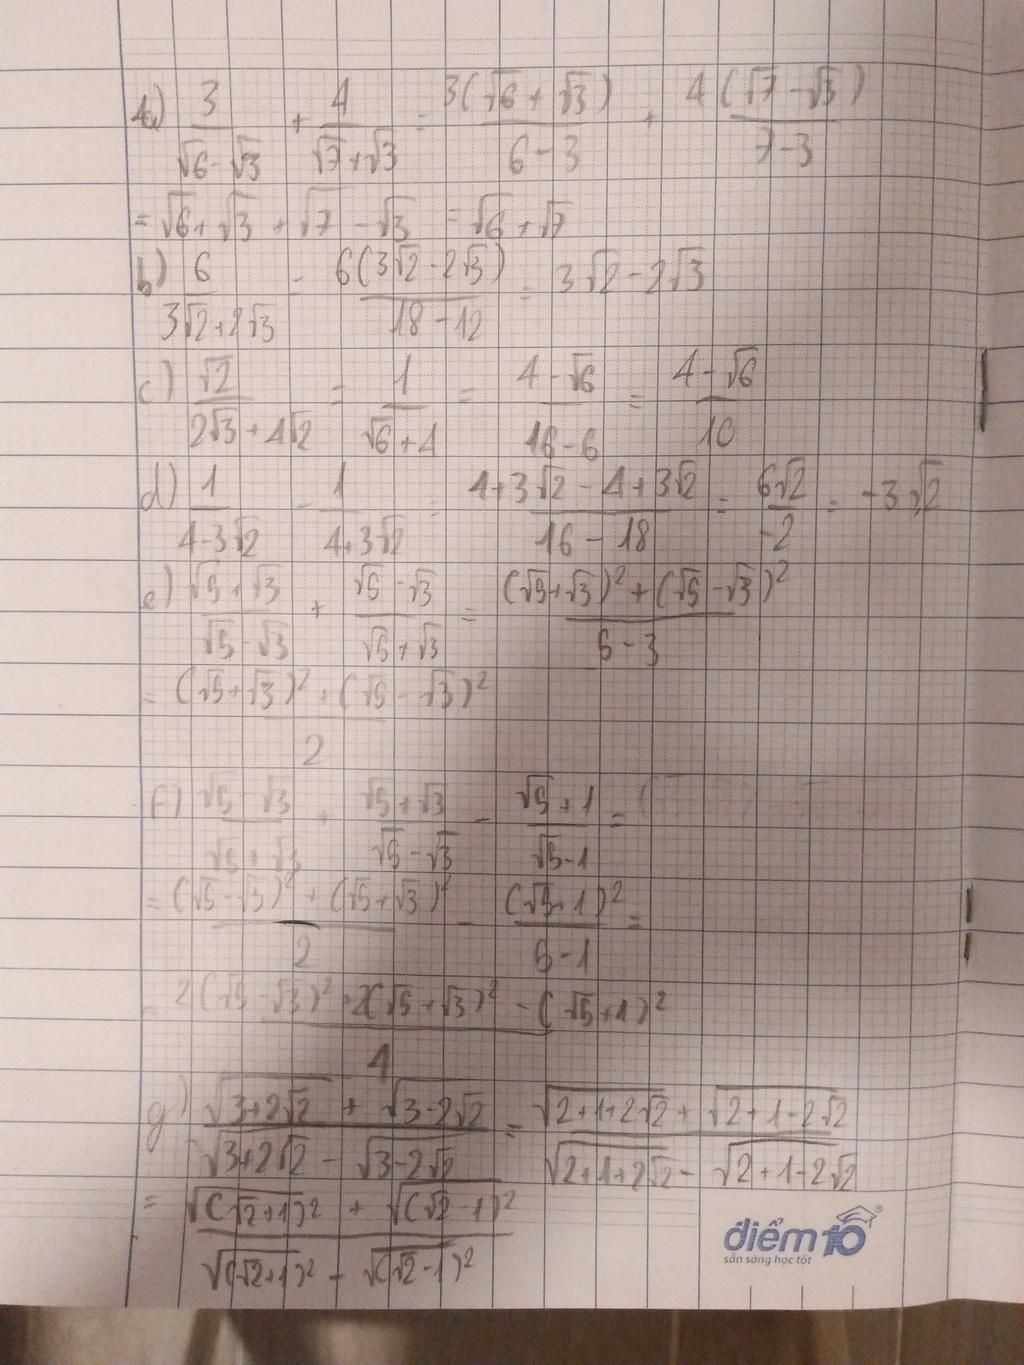 a) 3/(√6 - √3) + 4/(√7 + √3) = 3(√6 + √3)/(6 - 3) + 4(√7 - √3)/(7 - 3)
= √6 + √3 + √7 - √3 = √6 + √7
b) 6/(3√2 + 2√3) = 6(3√2 - 2√3)/(18 - 12) = 3√2 - 2√3
c) √2/(2√3 + 4√2) = 1/(√6 + 4) = (4 - √6)/(16 - 6) = (4 - √6)/10
d) 1/(4 - 3√2) - 1/(4 + 3√2) = (4 + 3√2 - 4 + 3√2)/(16 - 18) = 6√2/-2 = -3√2
e) (√5 + √3)/(√5 - √3) + (√5 - √3)/(√5 + √3) = ((√5 + √3)² + (√5 - √3)²)/(5 - 3)
= ((√5 + √3)² + (√5 - √3)²)/2
f) (√5 - √3)/(√5 + √3) + (√5 + √3)/(√5 - √3) - (√5 + 1)/(√5 - 1) =
= ((√5 - √3)² + (√5 + √3)²)/2 - (√5 + 1)²/(5 - 1) =
= (2(√5 - √3)² + 2(√5 + √3)² - (√5 + 1)²)/4
g) (√(3 + 2√2) + √(3 - 2√2))/(√(3 + 2√2) - √(3 - 2√2)) = (√(2 + 1 + 2√2) + √(2 + 1 - 2√2))/(√(2 + 1 + 2√2) - √(2 + 1 - 2√2))
= (√((√2 + 1)²) + √((√2 - 1)²))/(√((√2 + 1)²) - √((√2 - 1)²))
điểm 10
sẵn sàng học tốt